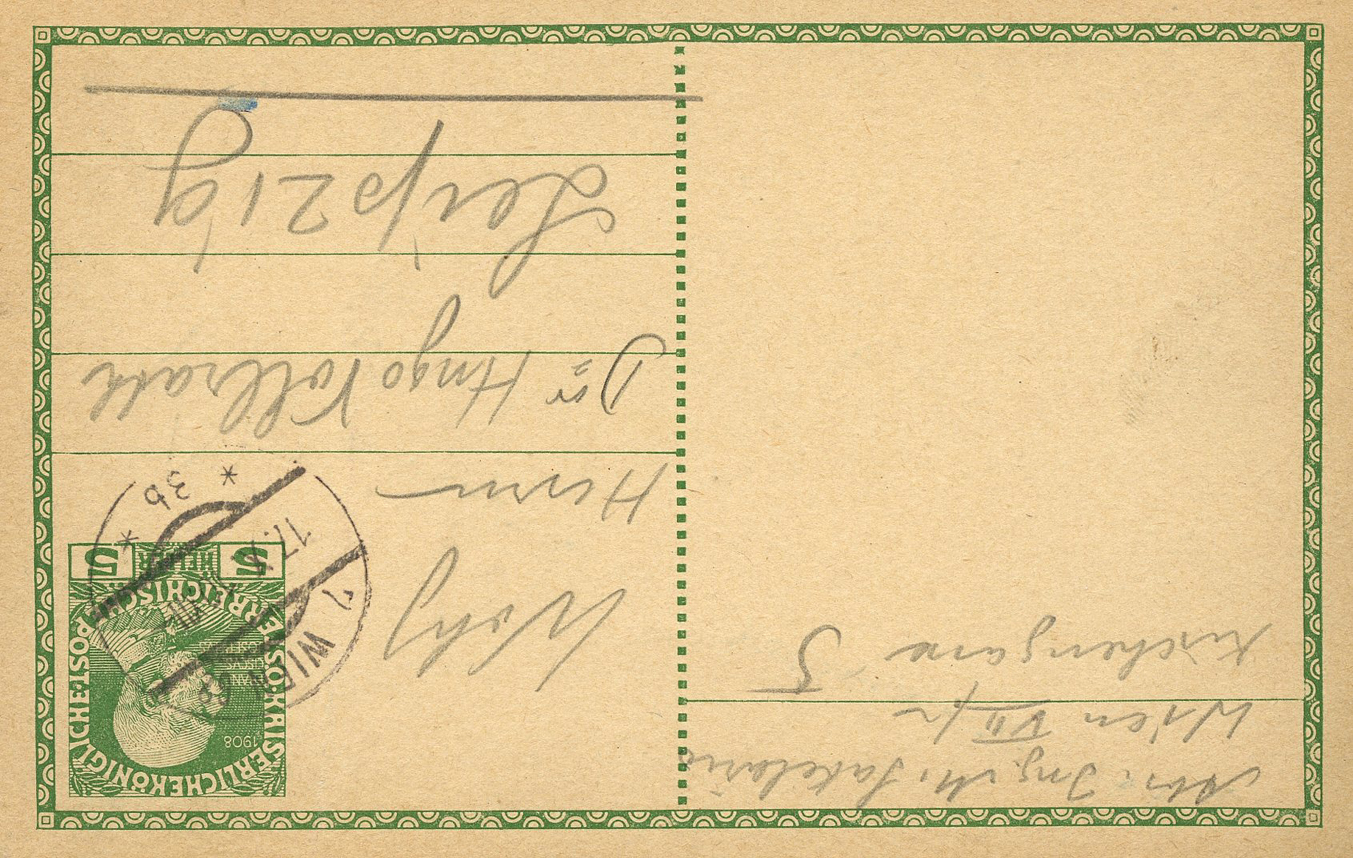 Abs: Ing. M. Sakelario
Wien VII/2
Kirchengasse 5
Wohlg
Herrn
Dr Hugo Vollrath
Leipzig
KAISERLICHEKÖNIGLICHE
ÖSTERREICHISCHE POST
1908
5 HELLER 5
7 WIEN
17. X
* 3b *